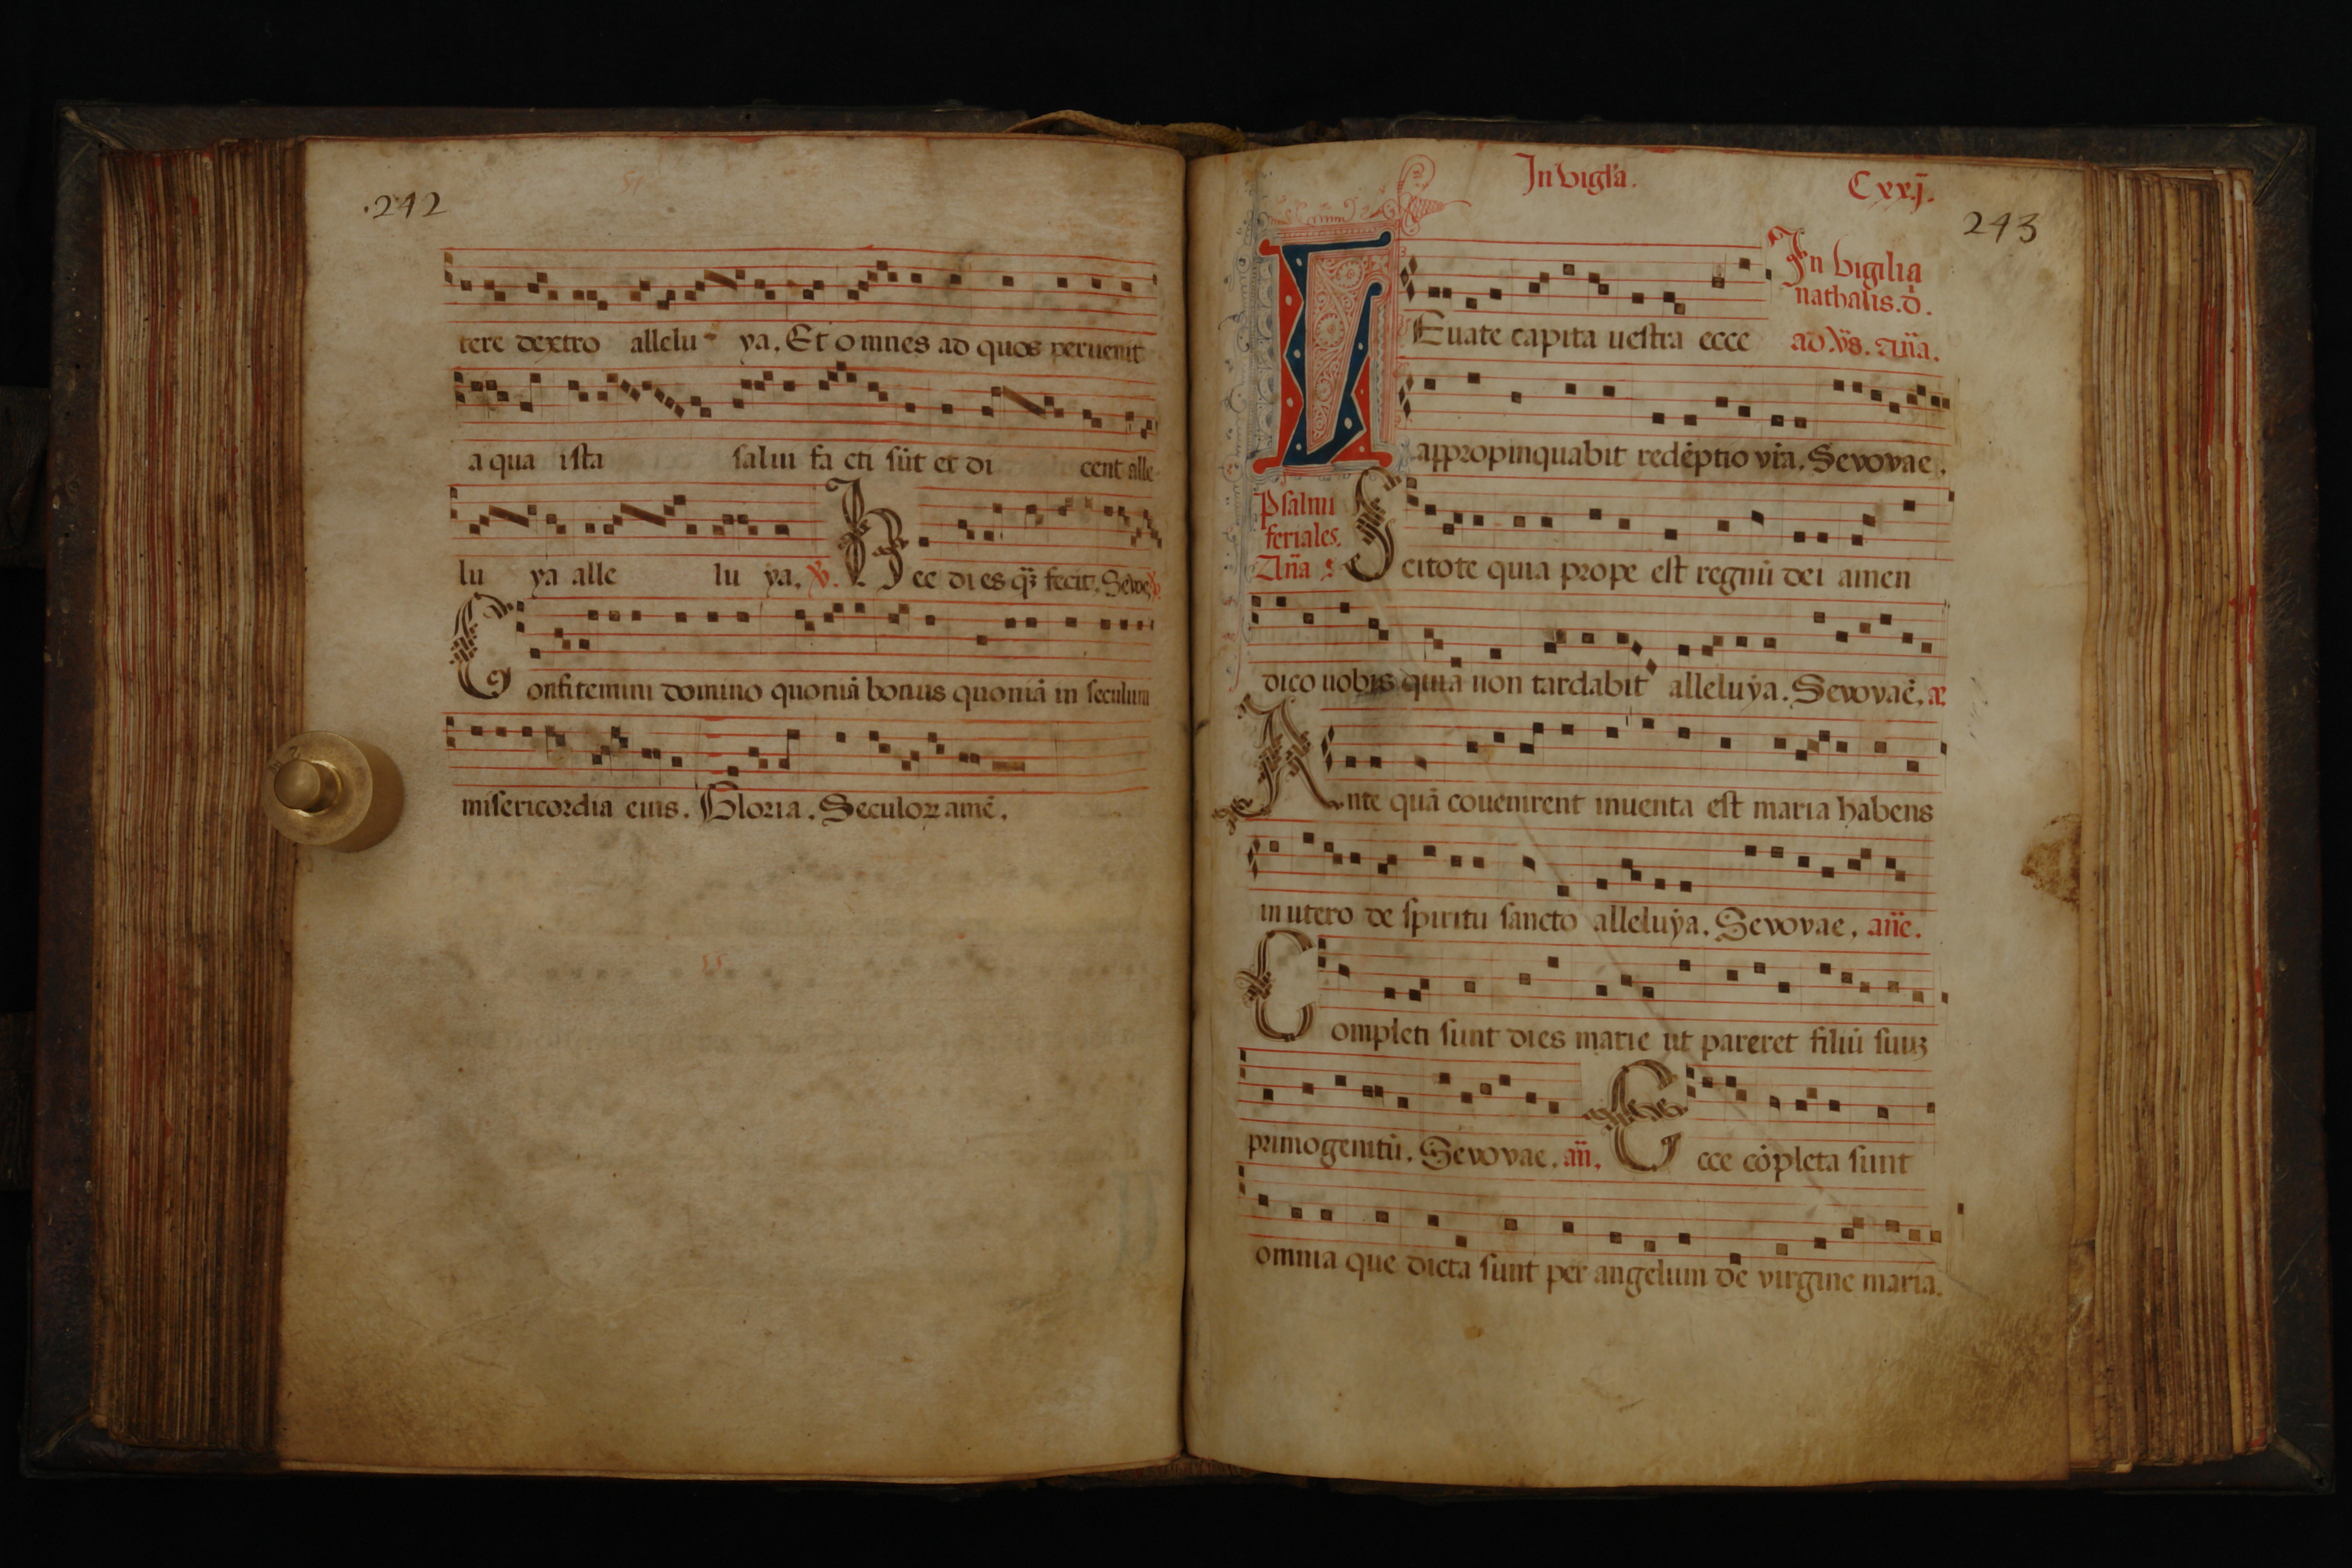 .242
tere dextro allelu ya. Et omnes ad quos peruenit
a qua ista salui facti sūt et di cent alle
lu ya alle lu ya. V. Hec dies q̄ fecit. Seuoe V.
Confitemini domino quoniā bonus quoniā in seculum
misericordia eius. Gloria. Seculoꝝ amē.
In vigl'a. Cxxj.
243
In vigilia
nathalis. d.
LEuate capita uestra ecce ad v̄s. Añā.
appropinquabit redēptio vr̄a. Sevovae.
Psalmi
feriales.
Añā
Scitote quia prope est regnū dei amen
dico uobis quia non tardabit alleluya. Sevovae. a.
Ante quā cōuenirent inuenta est maria habens
in utero de spiritu sancto alleluya. Sevovae. añe.
Completi sunt dies marie ut pareret filiū suuꝫ
primogenitū. Sevovae. añ. Ecce cōpleta sunt
omnia que dicta sunt per angelum de virgine maria.